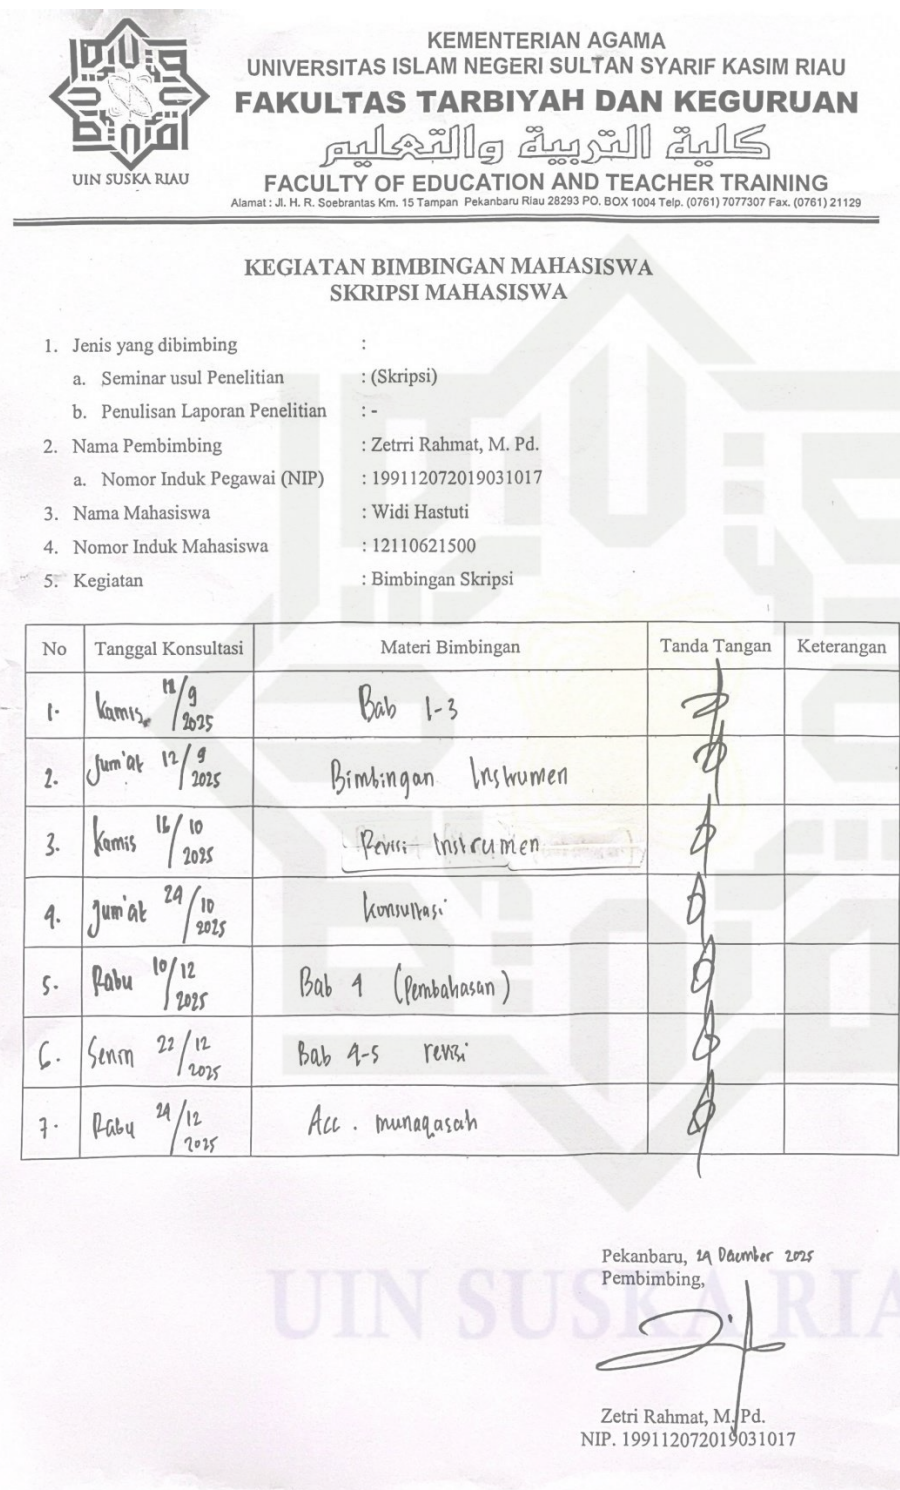 KEMENTERIAN AGAMA
UNIVERSITAS ISLAM NEGERI SULTAN SYARIF KASIM RIAU
FAKULTAS TARBIYAH DAN KEGURUAN
كلية التربية والتعليم
UIN SUSKA RIAU
FACULTY OF EDUCATION AND TEACHER TRAINING
Alamat : Jl. H. R. Soebrantas Km. 15 Tampan Pekanbaru Riau 28293 PO. BOX 1004 Telp. (0761) 7077307 Fax. (0761) 21129
KEGIATAN BIMBINGAN MAHASISWA
SKRIPSI MAHASISWA
1. Jenis yang dibimbing :
a. Seminar usul Penelitian : (Skripsi)
b. Penulisan Laporan Penelitian : -
2. Nama Pembimbing : Zetrri Rahmat, M. Pd.
a. Nomor Induk Pegawai (NIP) : 199112072019031017
3. Nama Mahasiswa : Widi Hastuti
4. Nomor Induk Mahasiswa : 12110621500
5. Kegiatan : Bimbingan Skripsi
No Tanggal Konsultasi Materi Bimbingan Tanda Tangan Keterangan
1. Kamis /9/2025 Bab 1-3
2. Jum'at 12/9/2025 Bimbingan Instrumen
3. Kamis 16/10/2025 Revisi Instrumen
4. Jum'at 24/10/2025 Konsultasi
5. Rabu 10/12/2025 Bab 4 (Pembahasan)
6. Senin 22/12/2025 Bab 4-5 revisi
7. Rabu 24/12/2025 Acc. munaqasah
Pekanbaru, 24 Desember 2025
Pembimbing,
UIN SUSKA RIA
Zetri Rahmat, M. Pd.
NIP. 199112072019031017